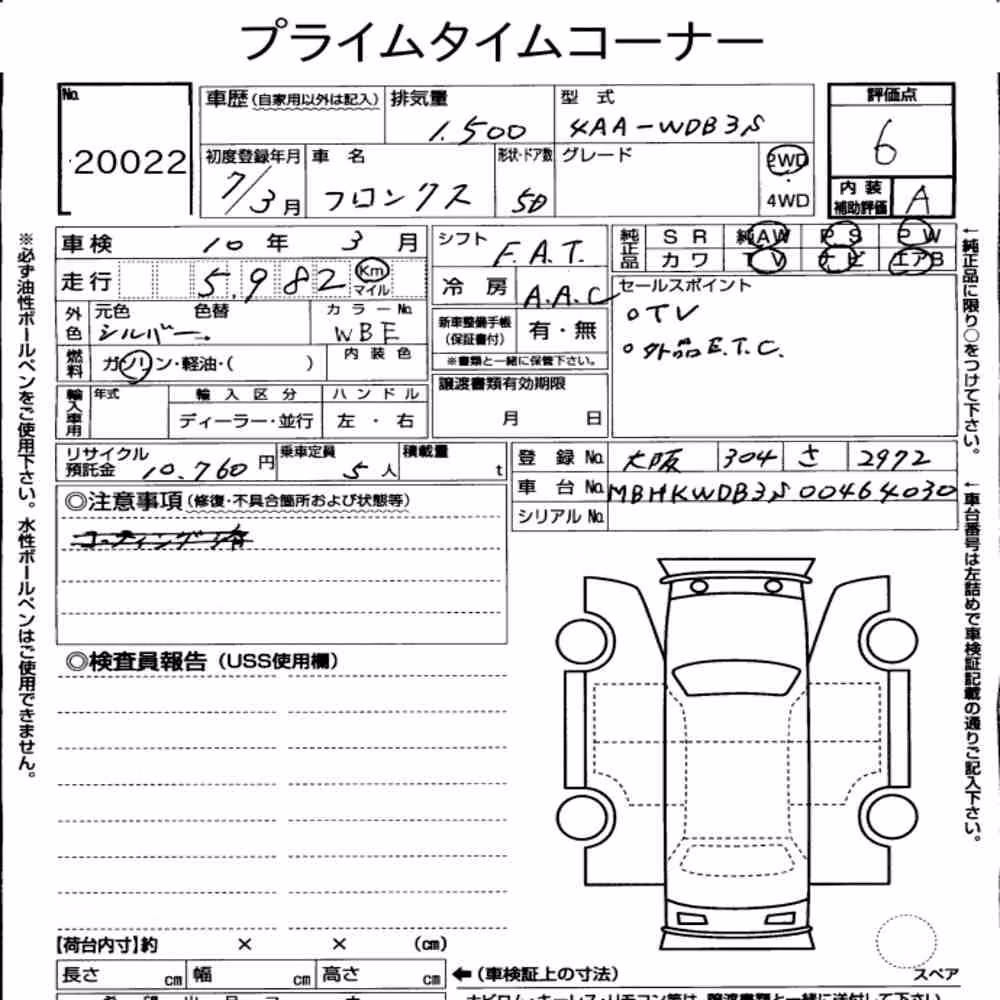 プライムタイムコーナー
No. 20022
車歴(自家用以外は記入) 排気量 1.500 型 式 4AA-WDB3S
初度登録年月 7/3月 車 名 フロンクス 形状・ドア数 5D グレード 2WD ・ 4WD
評価点 6
内装補助評価 A
車検 10年 3月 シフト F.A.T. 純正品 SR 純AW PS PW
走行 5.982 Km マイル 冷房 A.A.C カワ TV ナビ エアB
外色 元色 シルバー 色替 カラーNo. WBE 新車整備手帳(保証書付) 有・無 セールスポイント
※書類と一緒に保管下さい。 oTV
燃料 ガソリン・軽油・( ) 内装色 o外品E.T.C.
輸入車用 年式 輸入区分 ハンドル 譲渡書類有効期限
ディーラー・並行 左・右 月 日
リサイクル預託金 10.760円 乗車定員 5人 積載量 t 登録No. 大阪 304 さ 2972
車台No. MBHKWDB3S00464030
シリアルNo.
◎注意事項(修復・不具合箇所および状態等)
コーティング済
◎検査員報告(USS使用欄)
【荷台内寸】約 × × (cm)
長さ cm 幅 cm 高さ cm ←(車検証上の寸法)
スペア
※必ず油性ボールペンをご使用下さい。水性ボールペンはご使用できません。
←純正品に限り○をつけて下さい。
←車台番号は左詰めで車検証記載の通りご記入下さい。